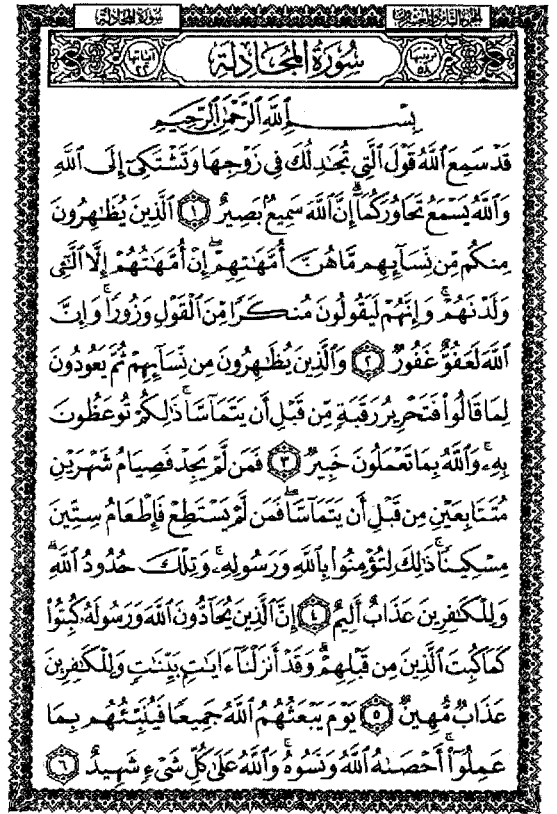 سورة المجادلة
الجزء الثامن والعشرون
ترتيبها ٥٨
سُورَةُ المُجَادلَة
آياتها ٢٢
بِسْمِ ٱللَّهِ ٱلرَّحْمَٰنِ ٱلرَّحِيمِ
قَدْ سَمِعَ ٱللَّهُ قَوْلَ ٱلَّتِي تُجَٰدِلُكَ فِي زَوْجِهَا وَتَشْتَكِيٓ إِلَى ٱللَّهِ
وَٱللَّهُ يَسْمَعُ تَحَاوُرَكُمَآۚ إِنَّ ٱللَّهَ سَمِيعُۢ بَصِيرٌ ١ ٱلَّذِينَ يُظَٰهِرُونَ
مِنكُم مِّن نِّسَآئِهِم مَّا هُنَّ أُمَّهَٰتِهِمْۖ إِنْ أُمَّهَٰتُهُمْ إِلَّا ٱلَّٰٓـِٔي
وَلَدْنَهُمْۚ وَإِنَّهُمْ لَيَقُولُونَ مُنكَرًا مِّنَ ٱلْقَوْلِ وَزُورًاۚ وَإِنَّ
ٱللَّهَ لَعَفُوٌّ غَفُورٌ ٢ وَٱلَّذِينَ يُظَٰهِرُونَ مِن نِّسَآئِهِمْ ثُمَّ يَعُودُونَ
لِمَا قَالُوا۟ فَتَحْرِيرُ رَقَبَةٍ مِّن قَبْلِ أَن يَتَمَآسَّاۚ ذَٰلِكُمْ تُوعَظُونَ
بِهِۦۚ وَٱللَّهُ بِمَا تَعْمَلُونَ خَبِيرٌ ٣ فَمَن لَّمْ يَجِدْ فَصِيَامُ شَهْرَيْنِ
مُتَتَابِعَيْنِ مِن قَبْلِ أَن يَتَمَآسَّاۖ فَمَن لَّمْ يَسْتَطِعْ فَإِطْعَامُ سِتِّينَ
مِسْكِينًاۚ ذَٰلِكَ لِتُؤْمِنُوا۟ بِٱللَّهِ وَرَسُولِهِۦۚ وَتِلْكَ حُدُودُ ٱللَّهِۗ
وَلِلْكَٰفِرِينَ عَذَابٌ أَلِيمٌ ٤ إِنَّ ٱلَّذِينَ يُحَآدُّونَ ٱللَّهَ وَرَسُولَهُۥ كُبِتُوا۟
كَمَا كُبِتَ ٱلَّذِينَ مِن قَبْلِهِمْۚ وَقَدْ أَنزَلْنَآ ءَايَٰتٍۭ بَيِّنَٰتٍۚ وَلِلْكَٰفِرِينَ
عَذَابٌ مُّهِينٌ ٥ يَوْمَ يَبْعَثُهُمُ ٱللَّهُ جَمِيعًا فَيُنَبِّئُهُم بِمَا
عَمِلُوٓا۟ۚ أَحْصَىٰهُ ٱللَّهُ وَنَسُوهُۚ وَٱللَّهُ عَلَىٰ كُلِّ شَىْءٍ شَهِيدٌ ٦